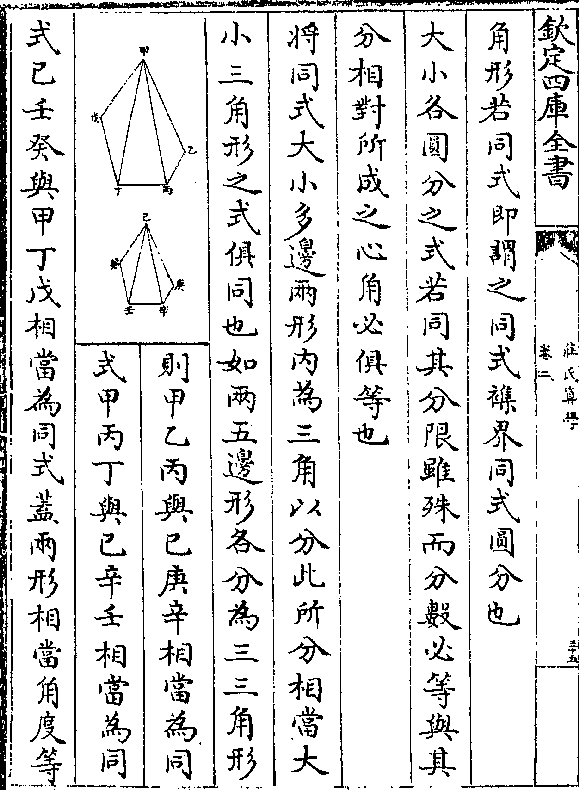 欽定四庫全書
莊氏算學
卷二
三十五
角形若同式即謂之同式襍界同式圓分也
大小各圓分之式若同其分限雖殊而分數必等與其
分相對所成之心角必俱等也
將同式大小多邊兩形内為三角以分此所分相當大
小三角形之式俱同也如兩五邊形各分為三三角形
則甲乙丙與已庚辛相當為同
式甲丙丁與已辛壬相當為同
甲
乙
丙
丁
戊
已
庚
辛
壬
癸
式已壬癸與甲丁戊相當為同式葢兩形相當角度等